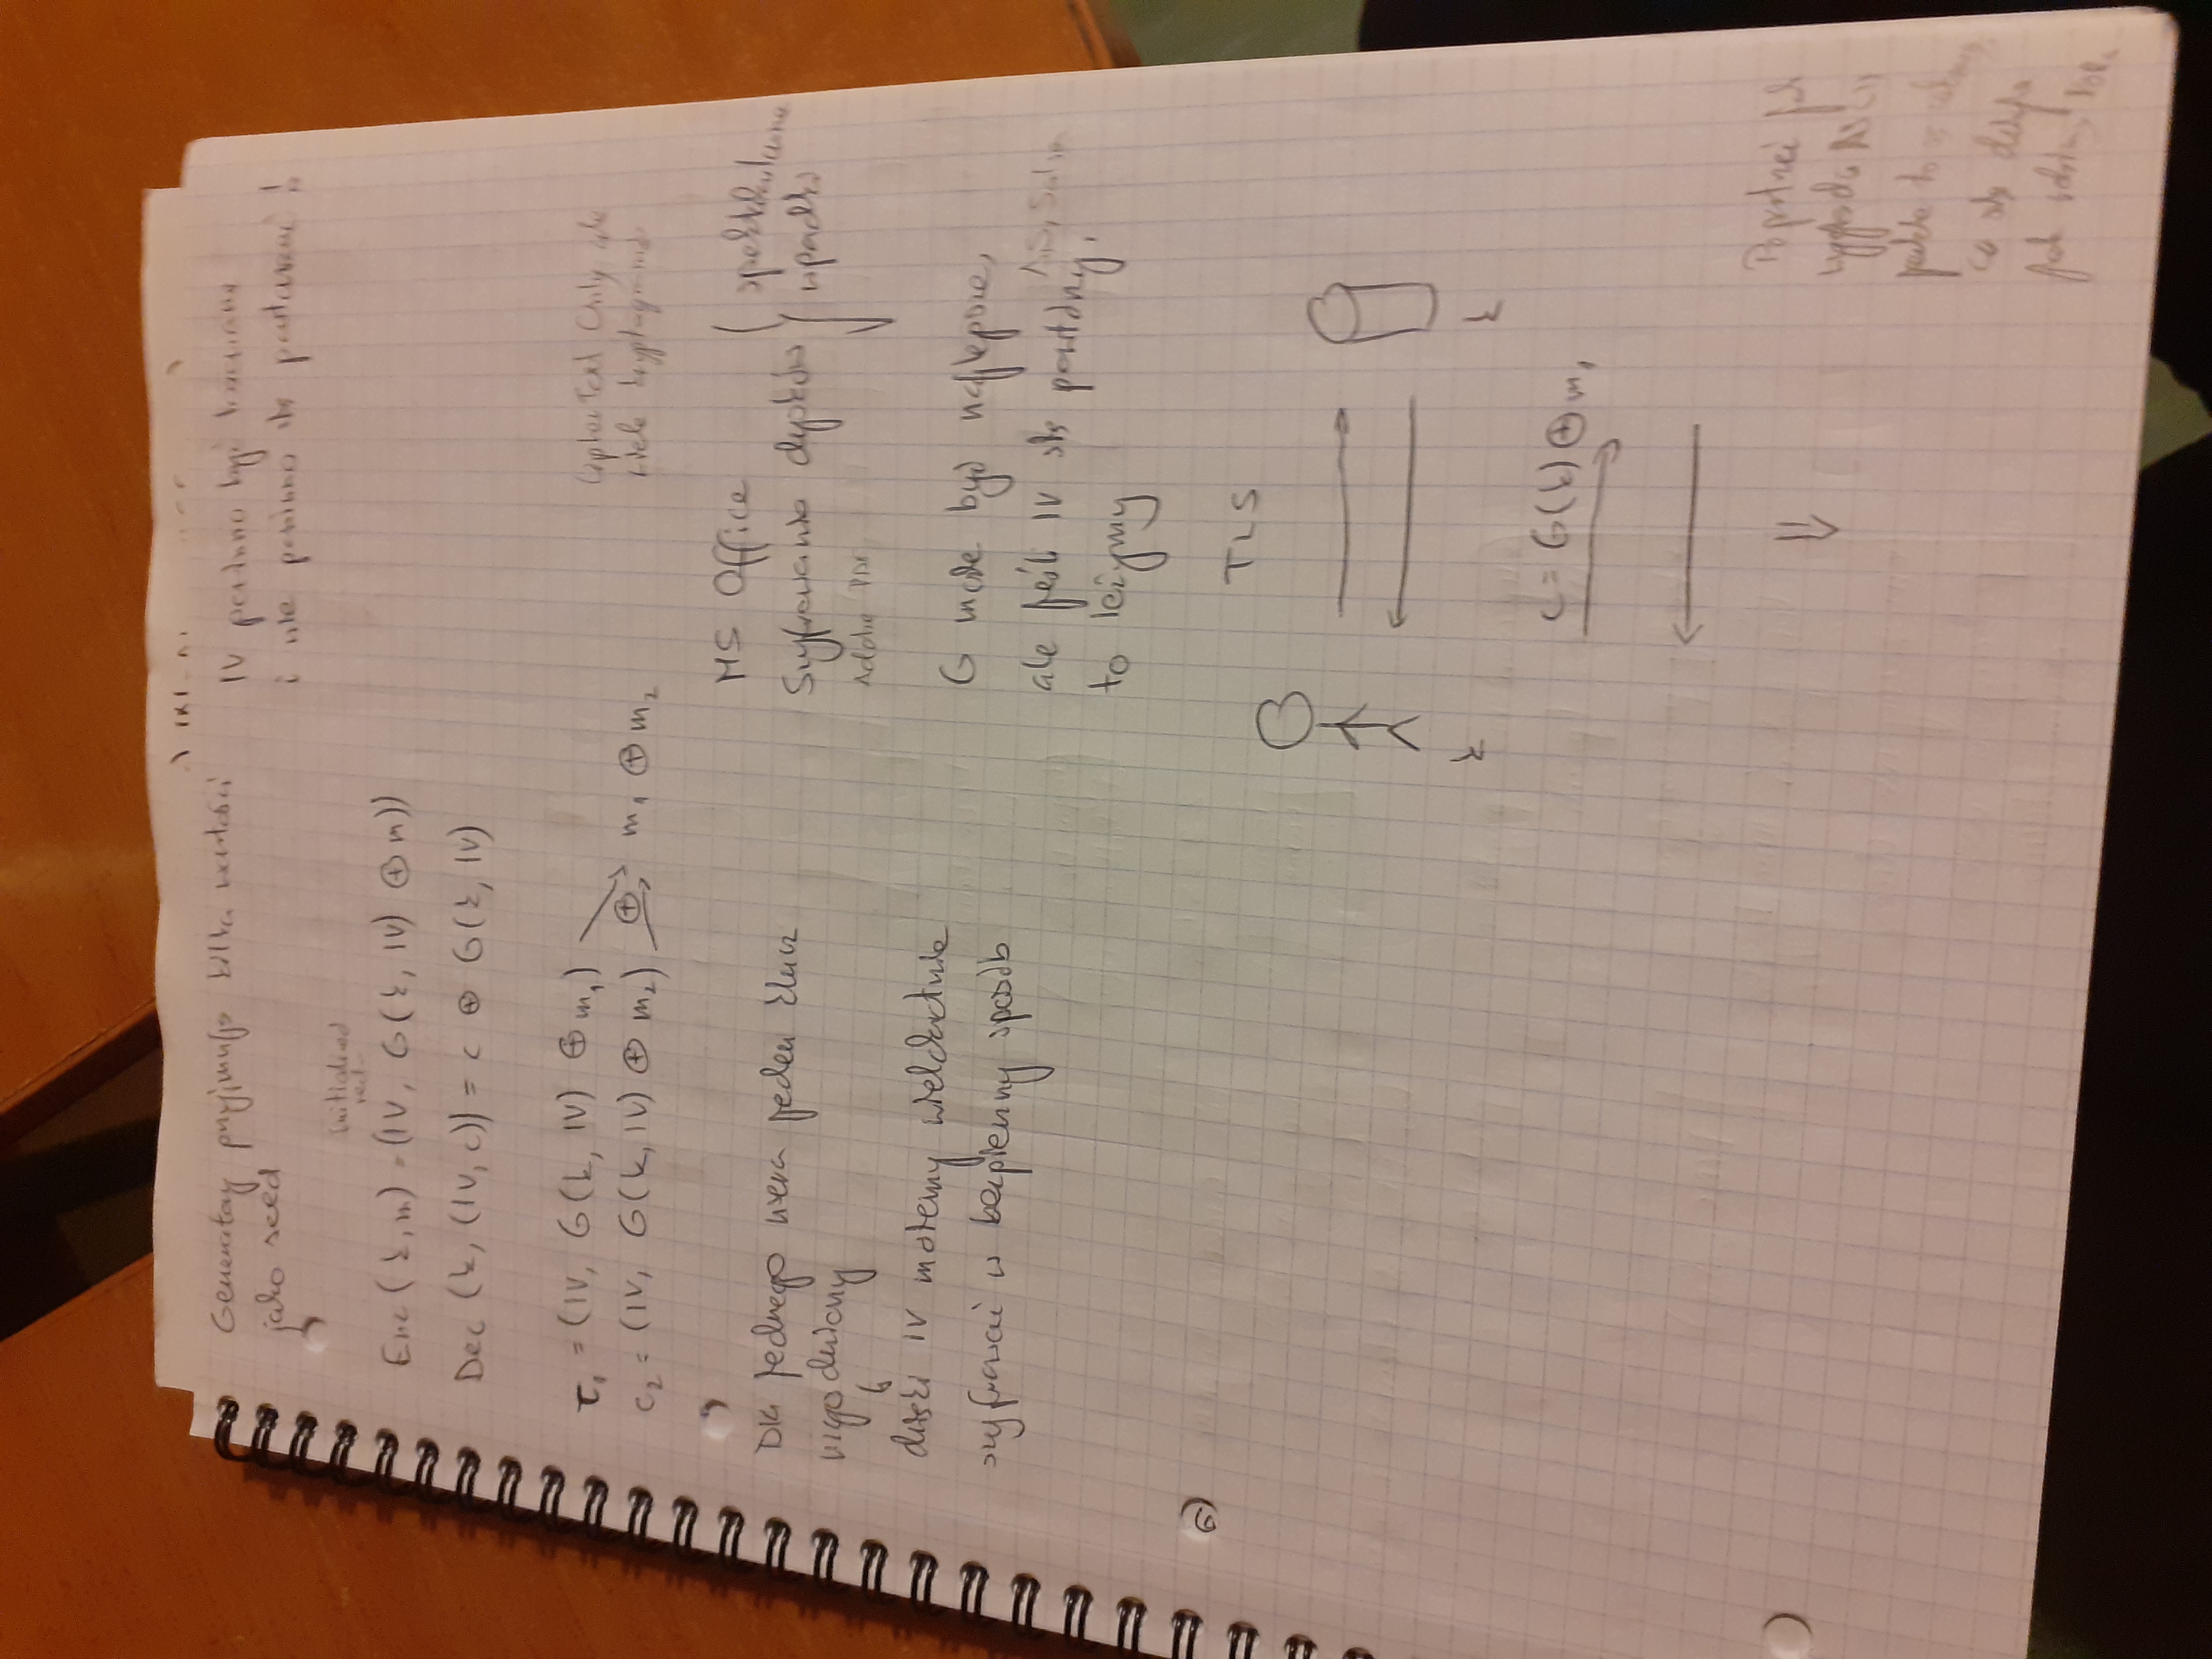 Generatory przyjmują kilka wartości
jako seed
IV powinno być losowane
i nie powinno się powtarzać !
initialized
vect-
Enc(k,m) = (IV, G(k, IV) ⊕ m))
Dec (k, (IV, c)) = c ⊕ G(k, IV)
c₁ = (IV, G(k, IV) ⊕ m₁)
c₂ = (IV, G(k, IV) ⊕ m₂) ⊕ m₁ ⊕ m₂
CipherText Only ale
wiele kryptogramów
Dla jednego usera jeden klucz
uzgodniony
dzięki IV możemy wielokrotnie
szyfrować w bezpieczny sposób
MS Office
Szyfrowanie dysków
Adobe PDF
spektakularne
wpadki
G może być najlepsze,
ale jeśli IV się powtórzy,
to leżymy
AES, Salsa
6)
TLS
k
k
c = G(k) ⊕ m₁
Popatrzeć jak
wygląda ASCII
co się dzieje
jak robimy XOR